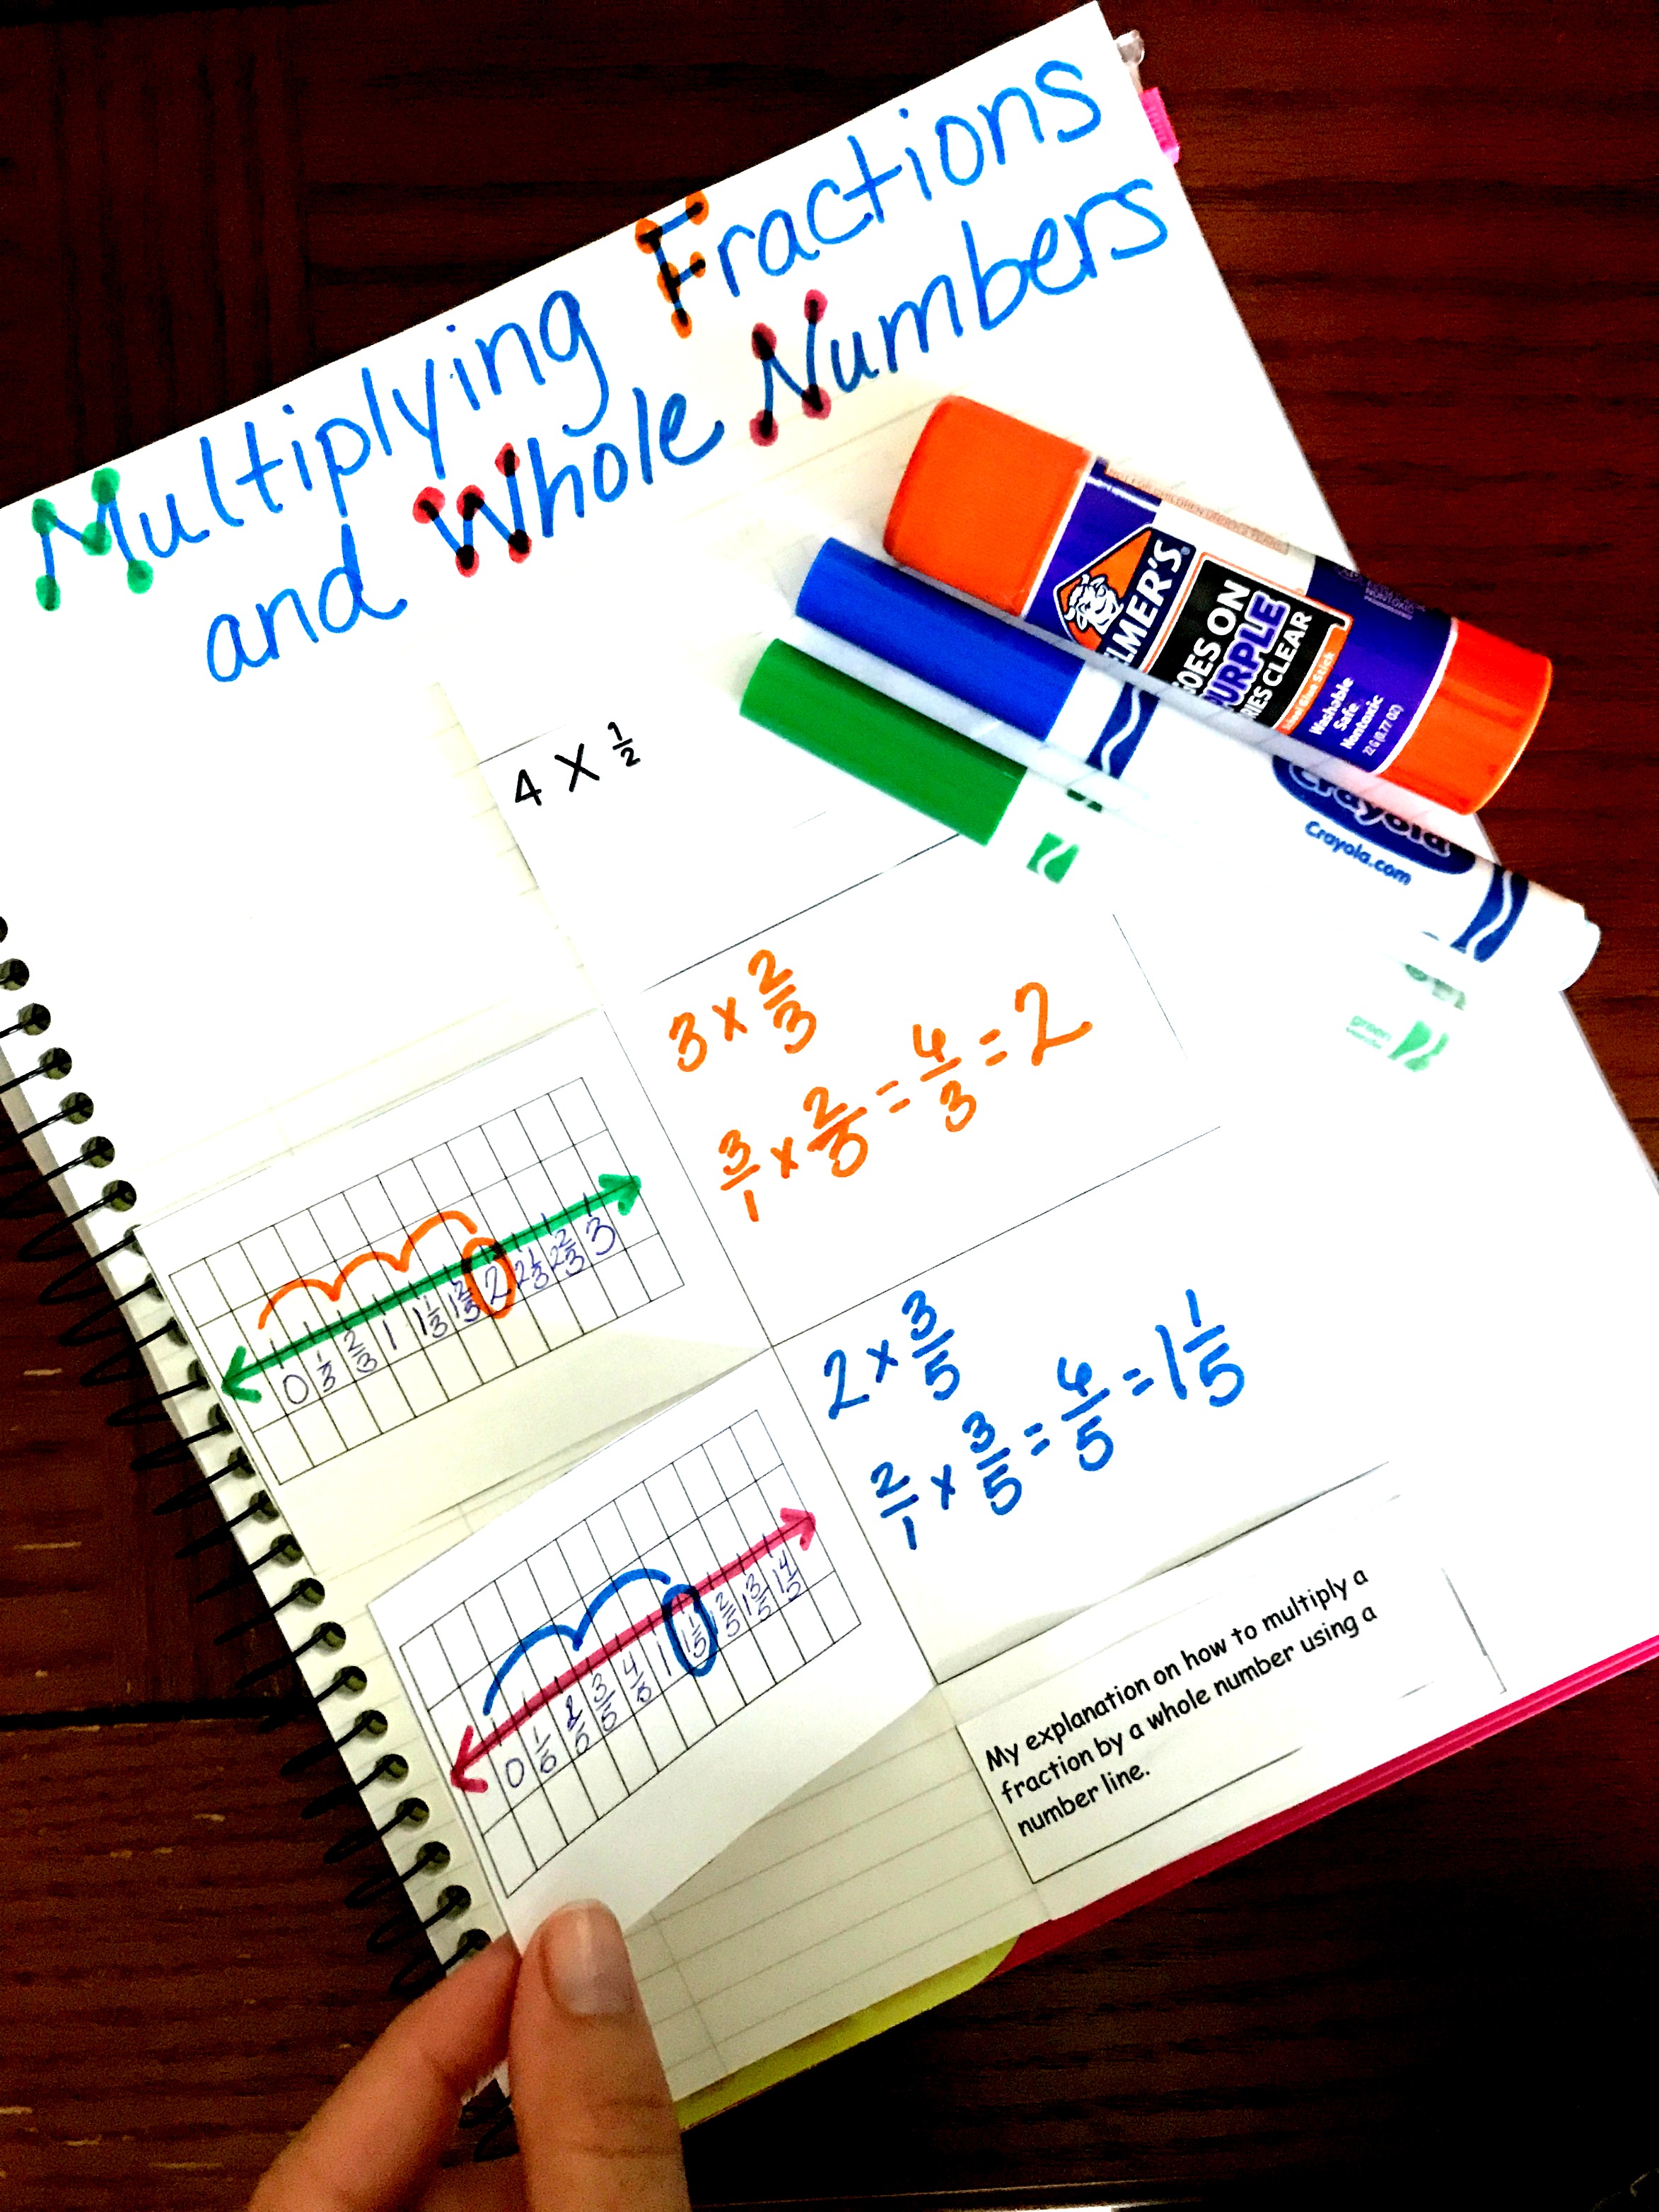 Multiplying Fractions
and Whole Numbers
ELMER'S
GOES ON
PURPLE
DRIES CLEAR
Washable
Safe
Nontoxic
22 G (0.77 OZ)
Crayola
Crayola.com
green
4 X 1/2
3 x 2/3
3/1 x 2/3 = 6/3 = 2
0 1/3 2/3 1 1 1/3 1 2/3 2 2 1/3 2 2/3 3
2 x 3/5
2/1 x 3/5 = 6/5 = 1 1/5
0 1/5 2/5 3/5 4/5 1 1 1/5 1 2/5 1 3/5 1 4/5
My explanation on how to multiply a
fraction by a whole number using a
number line.